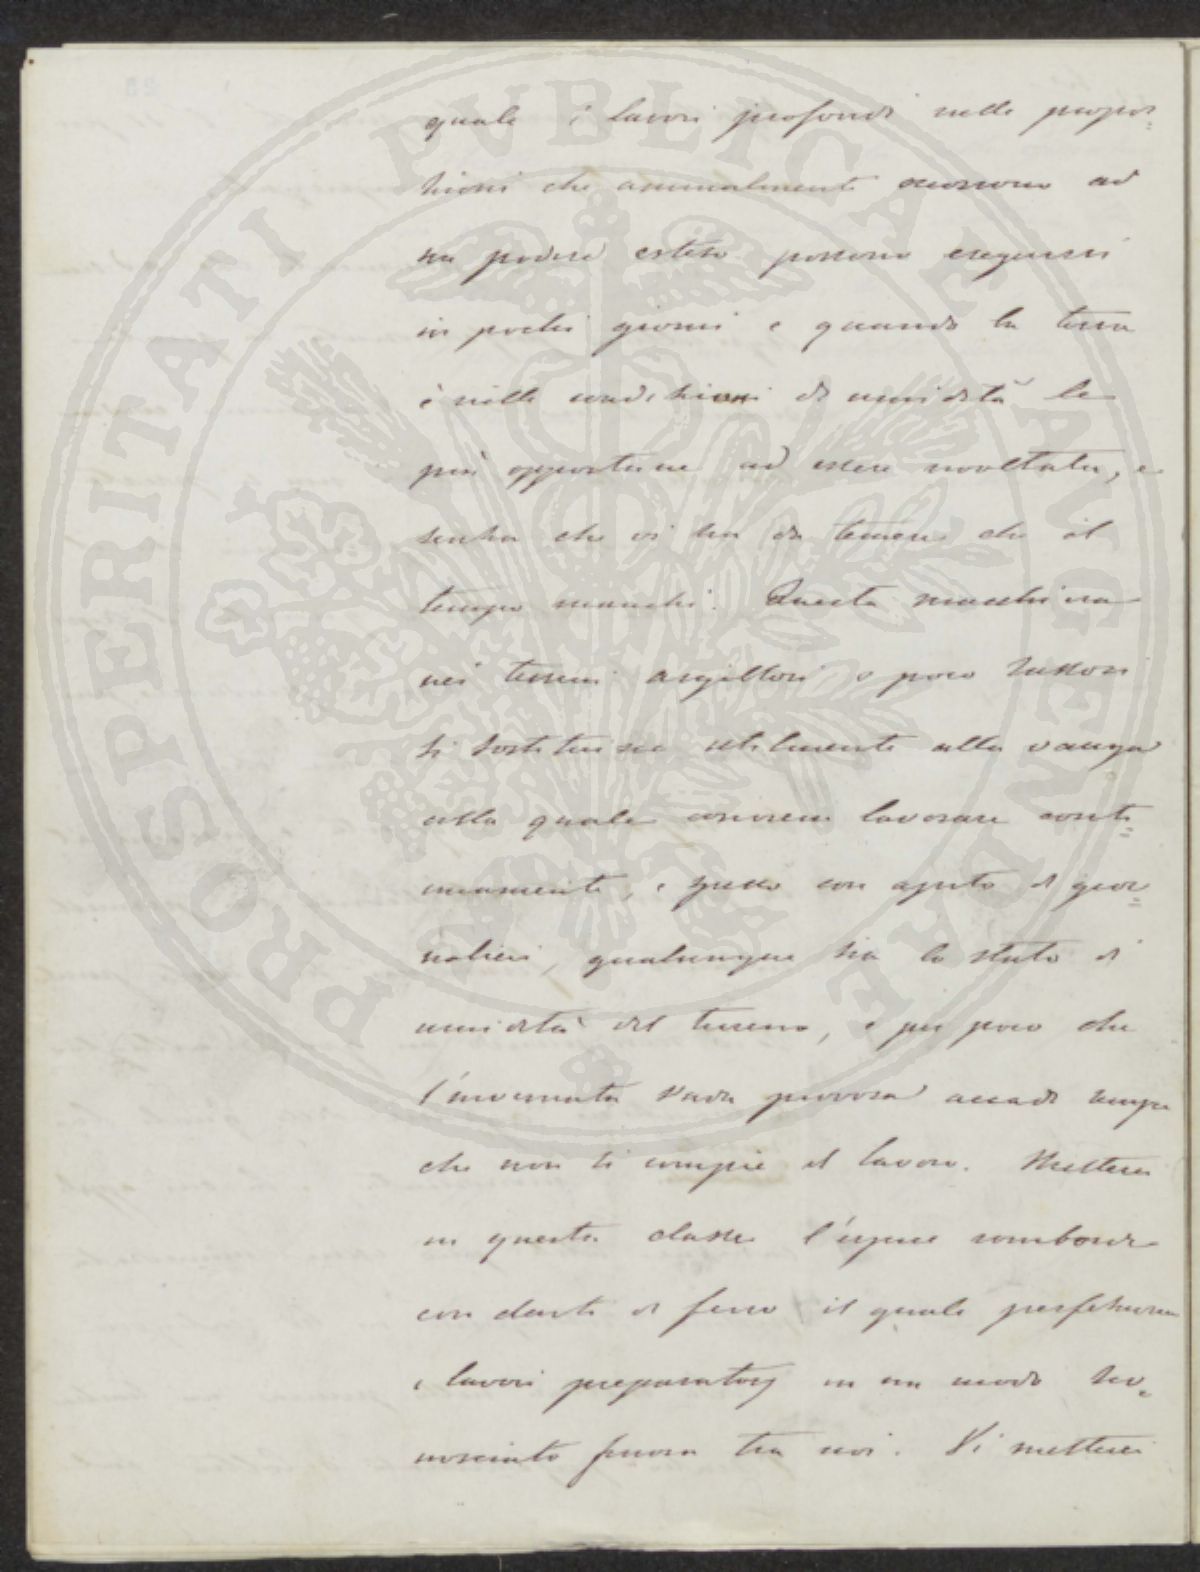 quale i lavori profondi nelle propor=
zioni che annualmente occorrono ad
un podere esteso possono eseguirsi
in pochi giorni e quando la terra
è nelle condizioni di umidità le
più opportune ad essere rivoltata, e
senza che vi sia da temere che il
tempo manchi. Questa macchina
nei terreni argillosi o poco sassosi
si sostituisce utilmente alla vanga
colla quale conviene lavorare conti=
nuamente, e spesso con ajuto di gior=
nalieri, qualunque sia lo stato di
umidità del terreno, e per poco che
l'invernata vada piovosa accade sempre
che non si compie il lavoro. Metterei
in questa classe l'erpice romboidale
con denti di ferro il quale perfeziona
i lavori preparatorj in un modo sco=
nosciuto finora tra noi. Vi metterei
PROSPERITATI PVBLICAE AVGENDAE